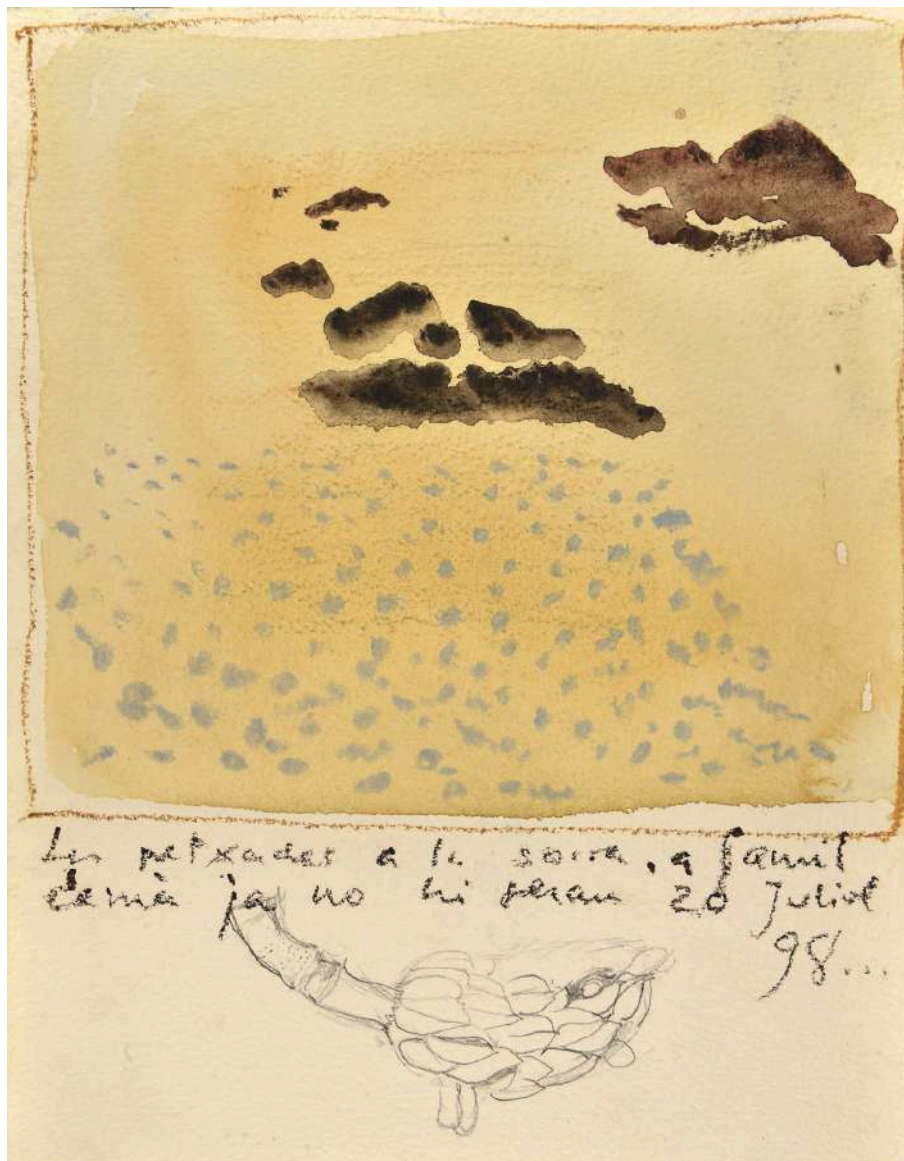 Les petxades a la sorra, a Samil
demà ja no hi seran 20 juliol
98...